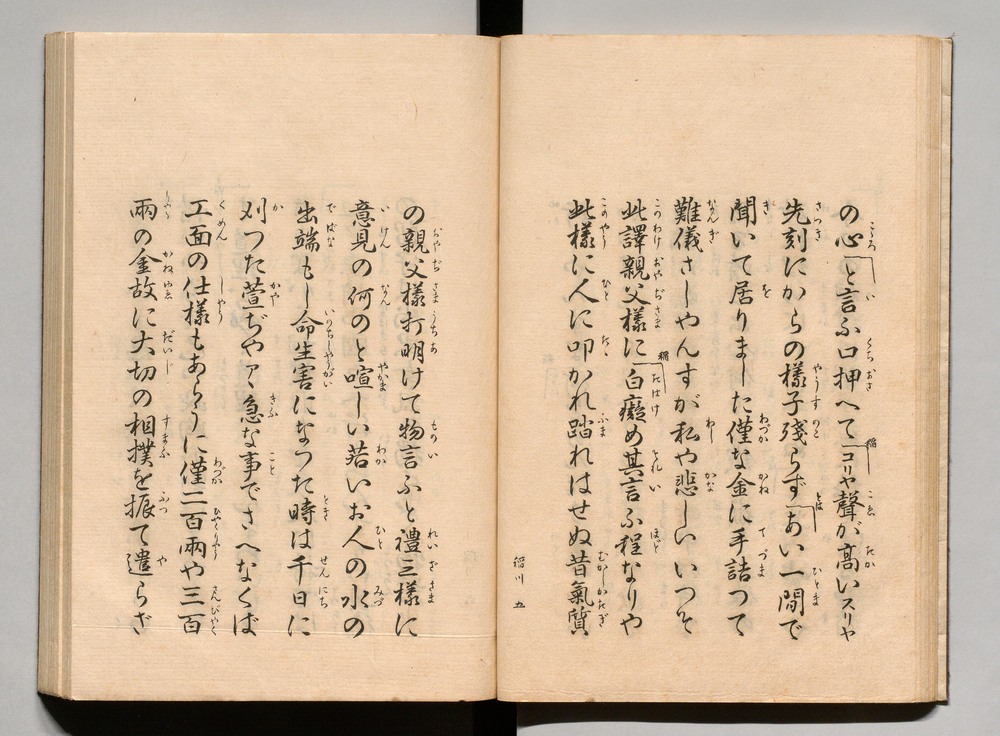 の心と言ふ口押へて稲コリャ聲が高いスリャ
先刻にからの様子殘らずとはあい一間で
聞いて居りました僅な金に手詰つて
難儀さしやんすが私や悲しいいつそ
此譯親父様に稲白癡め其言ふ程なりや
此様に人に叩かれ踏れはせぬ昔氣質
稲川 五
の親父様打明けて物言ふと禮三様に
意見の何のと喧しい若いお人の水の
出端もし命生害になつた時は千日に
刈つた萱ぢやァ急な事でさへなくば
工面の仕様もあらうに僅二百兩や三百
兩の金故に大切の相撲を振て遣らざ